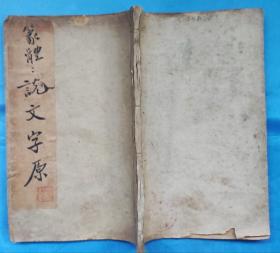 篆體：說文字原